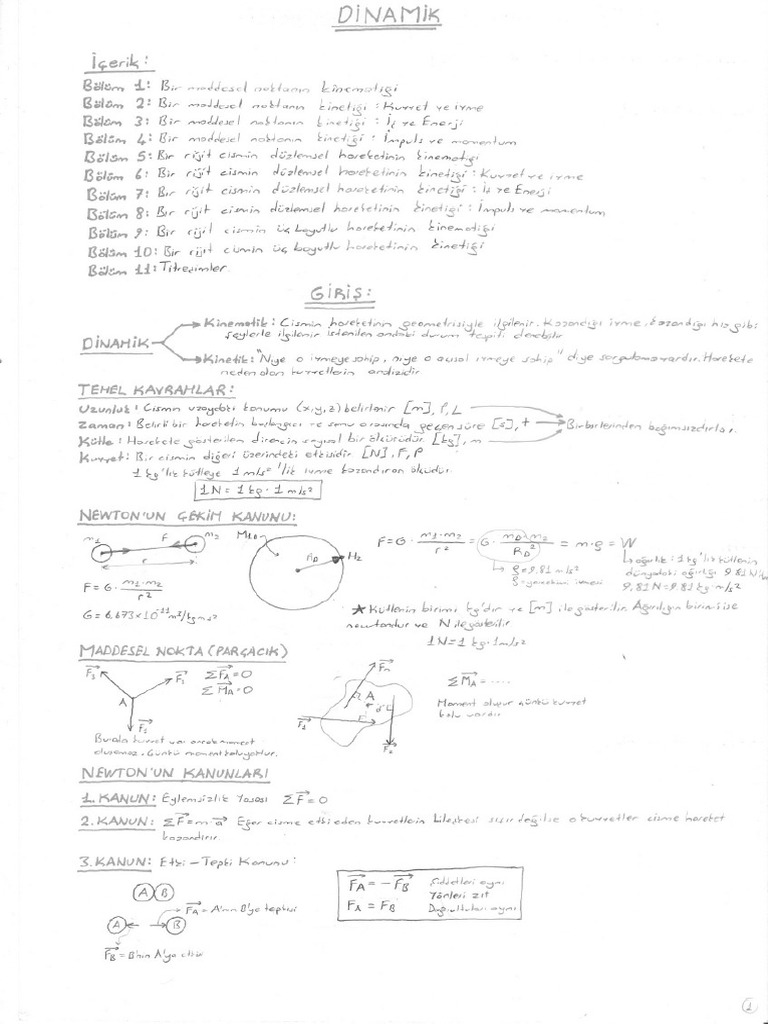 DİNAMİK
İçerik:
Bölüm 1: Bir maddesel noktanın kinematiği
Bölüm 2: Bir maddesel noktanın kinetiği: Kuvvet ve ivme
Bölüm 3: Bir maddesel noktanın kinetiği: İş ve Enerji
Bölüm 4: Bir maddesel noktanın kinetiği: İmpuls ve momentum
Bölüm 5: Bir rijit cismin düzlemsel hareketinin kinematiği
Bölüm 6: Bir rijit cismin düzlemsel hareketinin kinetiği: Kuvvet ve ivme
Bölüm 7: Bir rijit cismin düzlemsel hareketinin kinetiği: İş ve Enerji
Bölüm 8: Bir rijit cismin düzlemsel hareketinin kinetiği: İmpuls ve momentum
Bölüm 9: Bir rijit cismin üç boyutlu hareketinin kinematiği
Bölüm 10: Bir rijit cismin üç boyutlu hareketinin kinetiği
Bölüm 11: Titreşimler
GİRİŞ:
DİNAMİK
Kinematik: Cismin hareketinin geometrisiyle ilgilenir. Kazandığı ivme, kazandığı hız gibi
şeylerle ilgilenir istenilen andaki durum tespiti denebilir
Kinetik: "Niye o ivmeye sahip, niye o açısal ivmeye sahip" diye sorgulama vardır. Harekete
neden olan kuvvetlerin analizidir.
TEMEL KAVRAMLAR:
Uzunluk: Cismin uzaydaki konumu (x,y,z) belirlenir [m], l, L
Zaman: Belirli bir hareketin başlangıcı ve sonu arasında geçen süre [s], t
Birbirlerinden bağımsızdırlar.
Kütle: Harekete gösterilen direncin sayısal bir ölçüsüdür [kg], m
Kuvvet: Bir cismin diğeri üzerindeki etkisidir [N], F, P
1 kg'lık kütleye 1 m/s² 'lik ivme kazandıran ölçüdür.
1N = 1 kg · 1 m/s²
NEWTON'UN ÇEKİM KANUNU:
m₁ F m₂
r
F = G · m₁·m₂ / r²
G = 6,673×10⁻¹¹ m³/kg·s²
R_D
F = G · m₁·m₂ / r² = G · m_D·m₂ / R_D² = m·g = W
g = 9,81 m/s²
g = yerçekimi ivmesi
ağırlık: 1 kg'lık kütlenin
dünyadaki ağırlığı 9,81 N'dur
9,81 N = 9,81 kg·m/s²
★ Kütlenin birimi kg'dır ve [m] ile gösterilir. Ağırlığın birimi ise
newtondur ve N ile gösterilir
1N = 1 kg·1 m/s²
MADDESEL NOKTA (PARÇACIK)
F₃ F₁ A F₂
ΣF_A = 0
ΣM_A = 0
Burada kuvvet var ancak moment
oluşmaz. Çünkü moment kolu yoktur.
A d F₁ F₂
ΣM_A = .....
Moment oluşur çünkü kuvvet
kolu vardır.
NEWTON'UN KANUNLARI
1. KANUN: Eylemsizlik Yasası ΣF = 0
2. KANUN: ΣF = m·a Eğer cisme etki eden kuvvetlerin bileşkesi sıfır değilse o kuvvetler cisme hareket
kazandırır.
3. KANUN: Etki – Tepki Kanunu:
A B
F_A = A'nın B'ye tepkisi
A B
F_B = B'nin A'ya etkisi
F_A = -F_B Şiddetleri aynı
Yönleri zıt
F_A = F_B Doğrultuları aynı
1